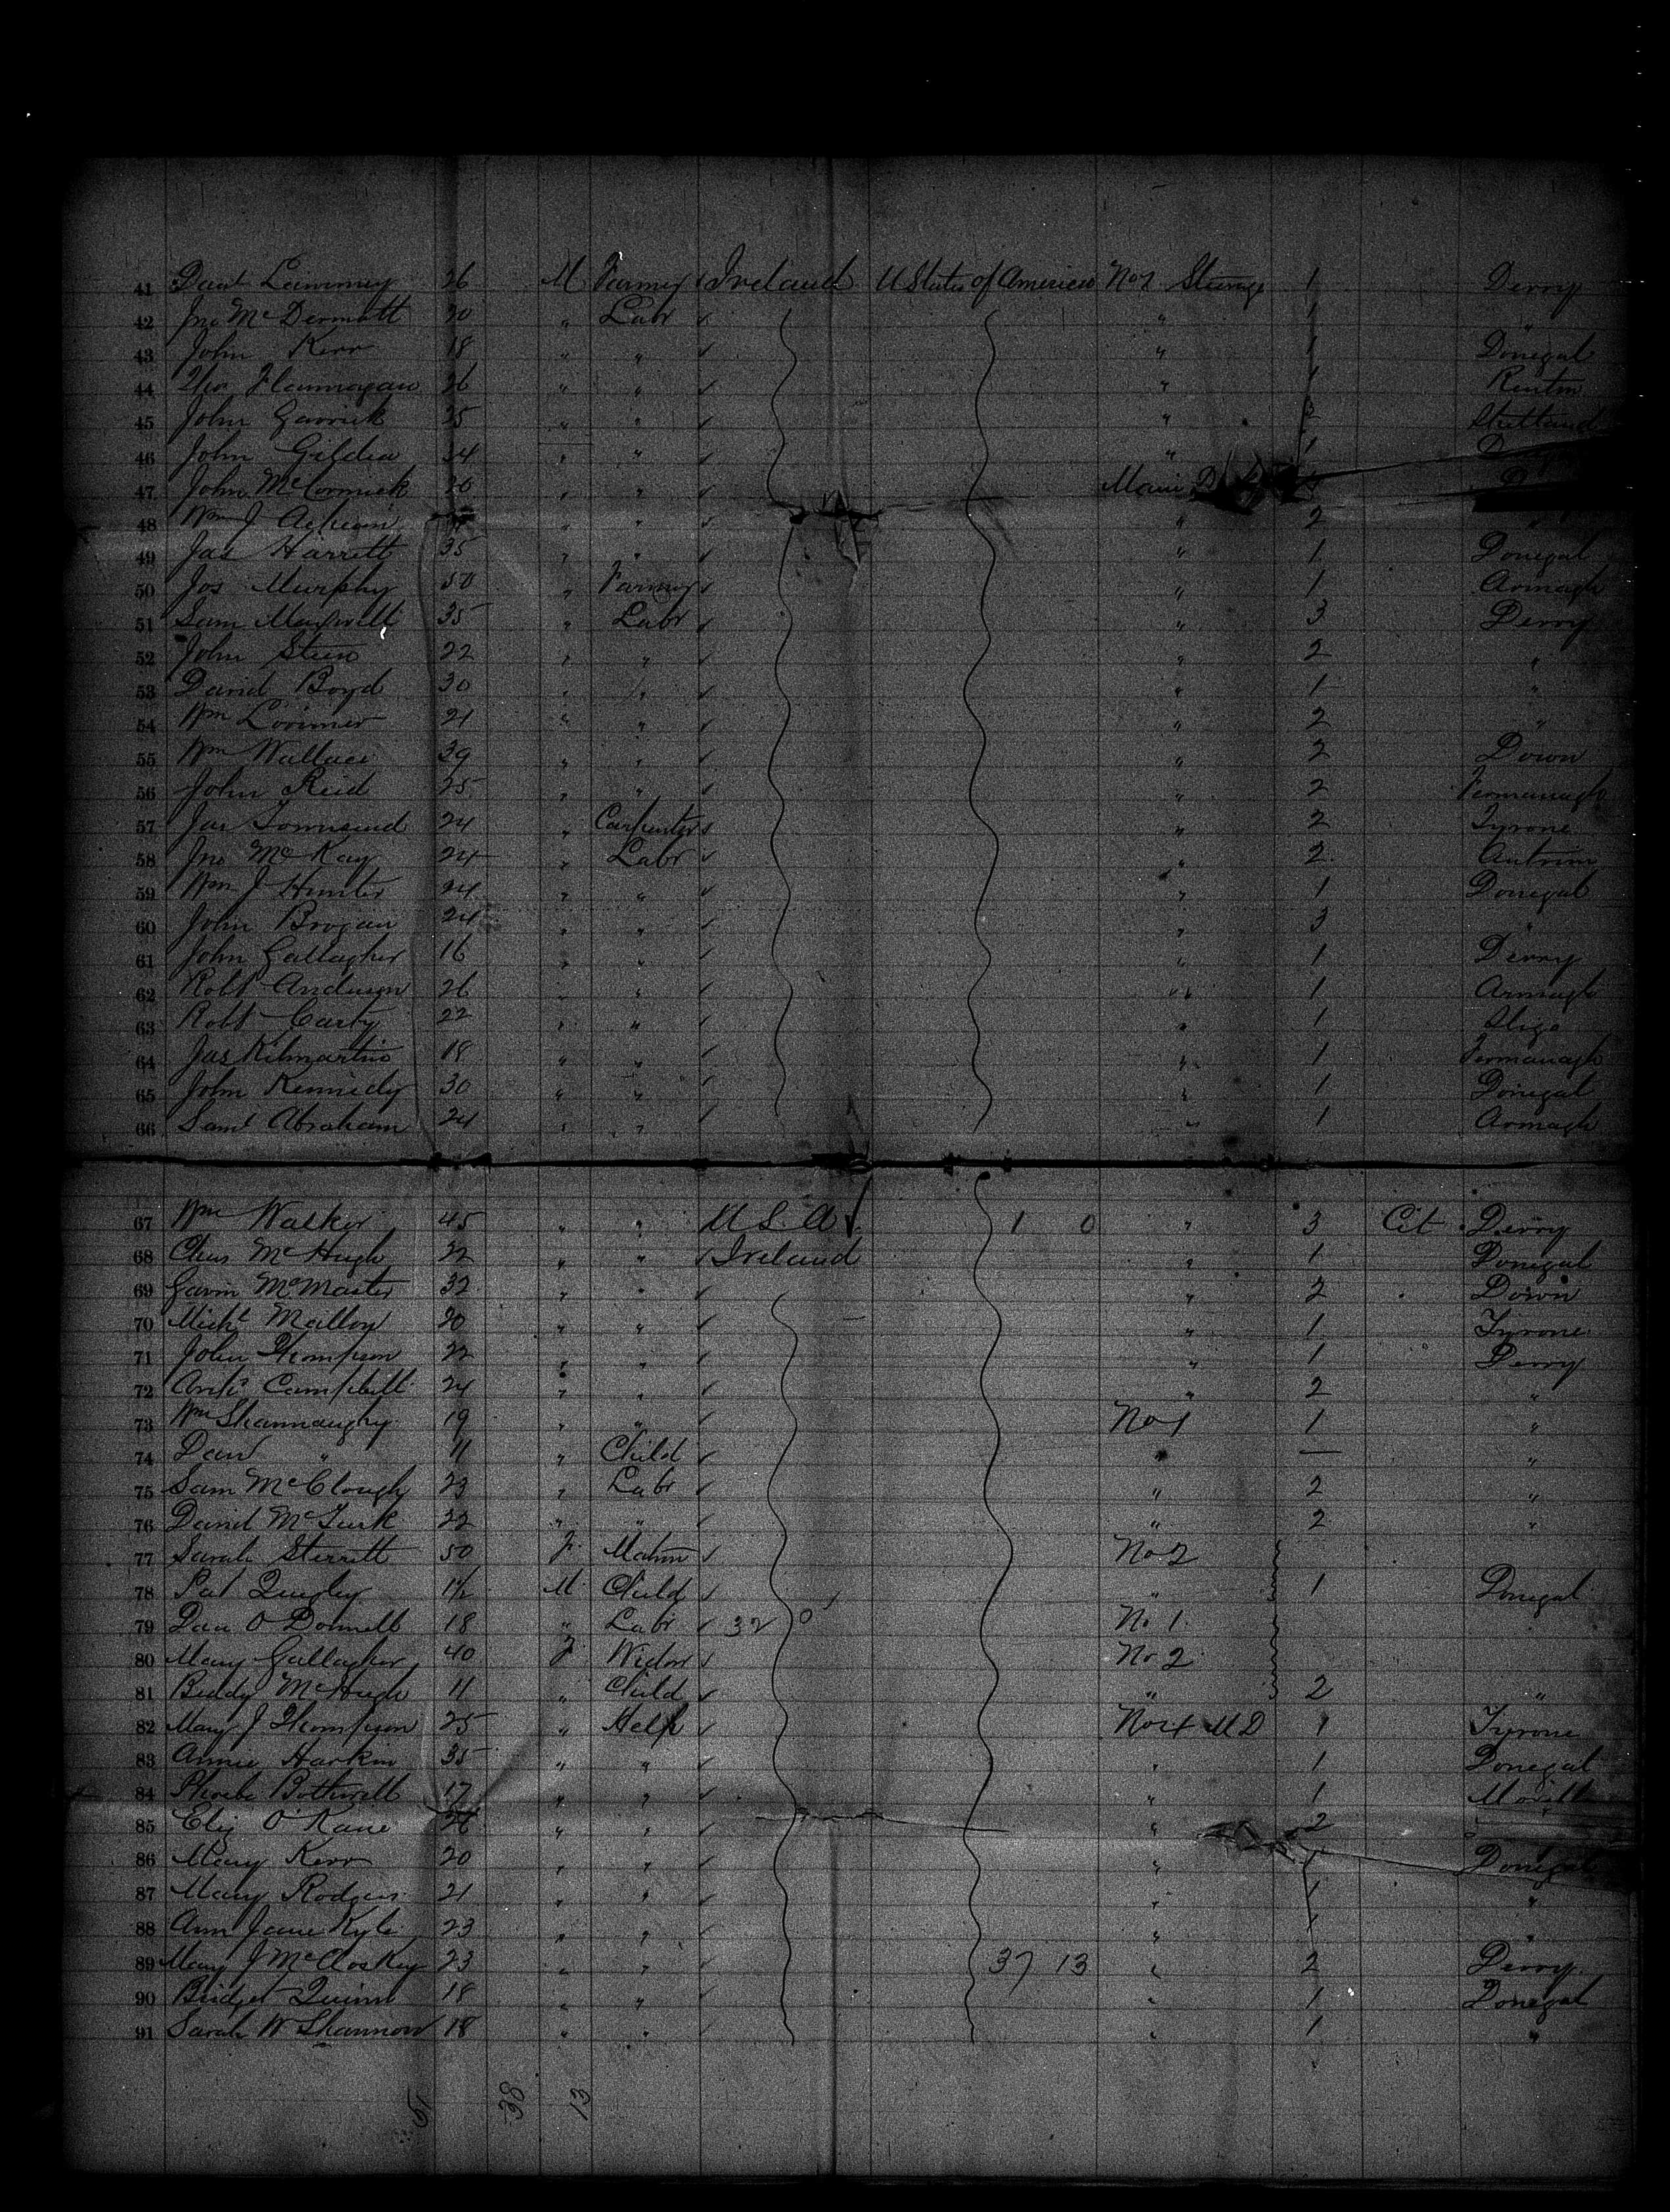 41 Danl Limmey 26 M Farmer Ireland U States of America No 2 Steerage 1 Derry
42 Jno McDermott 20 " Labr " 1 "
43 John Kerr 18 " " " 1 Donegal
44 Thos Flannagan 26 " " " 1
45 John Garrick 25 " " "
46 John Gildea 34 " " " 1
47 John McCormick 20 " " Main
48 Wm J " " " 2 "
49 Jas Harrett 35 " " " 1 Donegal
50 Jos Murphy 50 " Farmer " 1 Armagh
51 Sam Maxwell 35 " Labr " 3 Derry
52 John Steen 22 " " " 2 "
53 David Boyd 30 " " " 1 "
54 Wm Lorimer 21 " " " 2 "
55 Wm Wallace 39 " " " 2 Down
56 John Reid 25 " " " 2 Fermanagh
57 Jas Townsend 24 " Carpenter " 2 Tyrone
58 Jno McKay 24 " Labr " 2 Antrim
59 Wm J Hunter 24 " " " 1 Donegal
60 John Brogan 24 " " " 3 "
61 John Gallagher 16 " " " 1 Derry
62 Robt Anderson 26 " " " 1 Armagh
63 Robt Carty 22 " " " 1 Sligo
64 Jas Kilmartin 18 " " " 1 Fermanagh
65 John Kennedy 30 " " " 1 Donegal
66 Saml Abraham 24 " " " 1 Armagh
67 Wm Walker 45 " " U S A 1 0 " 3 Cit Derry
68 Chas McHugh 22 " " Ireland " 1 Donegal
69 Gavin McMaster 32 " " " 2 Down
70 Michl Mallon 20 " " " 1 Tyrone
71 John Thompson 22 " " " 1 Derry
72 Archd Campbell 24 " " " 2 "
73 Wm Shannaughy 19 " " No 1 1 "
74 Danl " 11 " Child " — "
75 Sam McClough 23 " Labr " 2 "
76 David McTurk 22 " " " 2 "
77 Sarah Sterritt 50 F Matrn No 2
78 Pat Quigley 1½ M Child " 1 Donegal
79 Dan O Donnell 18 " Labr 32 0 No 1
80 Mary Gallagher 40 F Widow No 2
81 Biddy McHugh 11 " Child " 2 "
82 Mary J Thompson 25 " Help No 4 M D 1 Tyrone
83 Annie Harkin 35 " " " 1 Donegal
84 Phoebe Bothwell 17 " " " 1 Moville
85 Eliz O'Kane 26 " " " 2
86 Mary Kerr 20 " " " 1 Donegal
87 Mary Rodgers 21 " " " 1 "
88 Ann Jane Kyle 23 " " " 1 "
89 Mary J McCloskey 23 " " 37 13 " 2 Derry
90 Bridget Quinn 18 " " " 1 Donegal
91 Sarah W Shannon 18 " " " 1 "
51 38 13